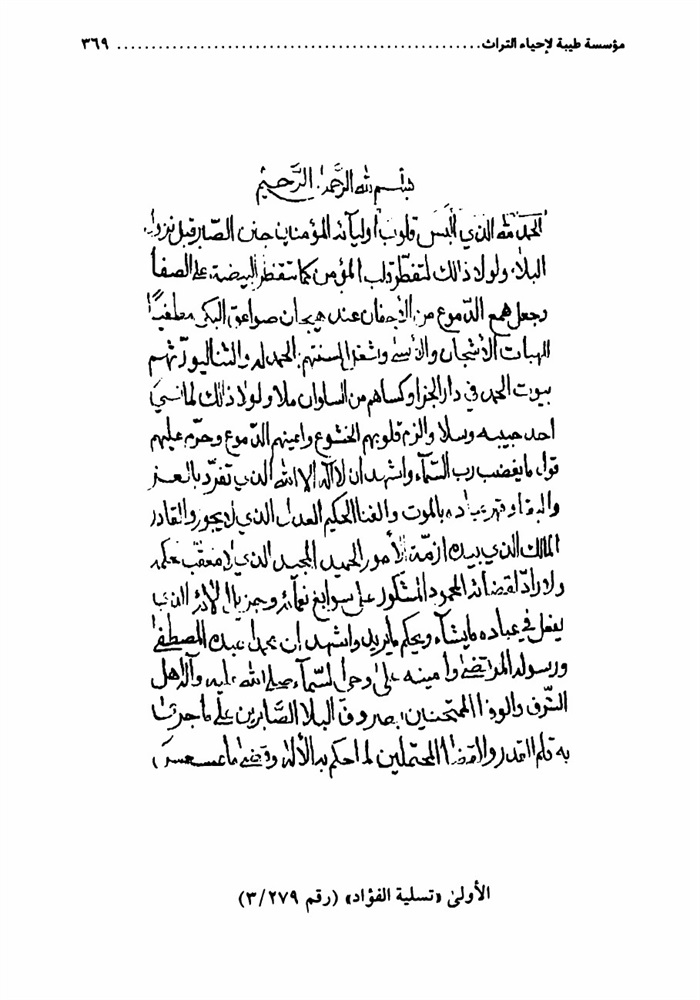 مؤسسة طيبة لإحياء التراث ........................................................ ٣٦٩
بسم الله الرَّحمن الرَّحيم
الحمد لله الذي ألبس قلوب اوليآئه المؤمنين جنن الصّبر قبل نزول
البلاء ولولا ذالك لتفطّر قلب المؤمن كما تتفطر البيضة على الصفا
وجعل همع الدّموع من الأجفان عند هيجان صواعق البكى مطفيًا
لهبات الأشجان والأسى وشغل السنتهم الحمد له والثنا ليورّثهم
بيوت الحمد في دار الجزا وكساهم من السلوان ملا ولولا ذالك لما نسي
احد حبيبه وسلا والزم قلوبهم الخشوع واعينهم الدّموع وحرّم عليهم
قول ما يغضب رب السّمآء واشهد ان لا اله الا الله الذي تفرّد بالعز
والبقا وقهر عباده بالموت والفنا الحكيم العدل الذي لا يجور والقادر
المالك الذي بيده ازمّة الأمور الحميد المجيد الذي لا معقب لحكمه
ولا رادّ لقضائه المحمود المشكور على سوابغ نعمآئه وجزيل الائه الذي
يفعل في عباده ما يشآء ويحكم ما يريد واشهد ان محمدا عبده المصطفى
ورسوله المرتضى وامينه على وحى السّمآء صلى الله عليه وآله اهل
الشّرف والوفا الممتحنين بصروف البلا الصَّابرين على ما جرى
به قلم القدر والقضا المحتملين لما حكم به الأله وقضى ما عسعس
الأولىٰ «تسلية الفؤاد» (رقم ٣/٢٧٩)